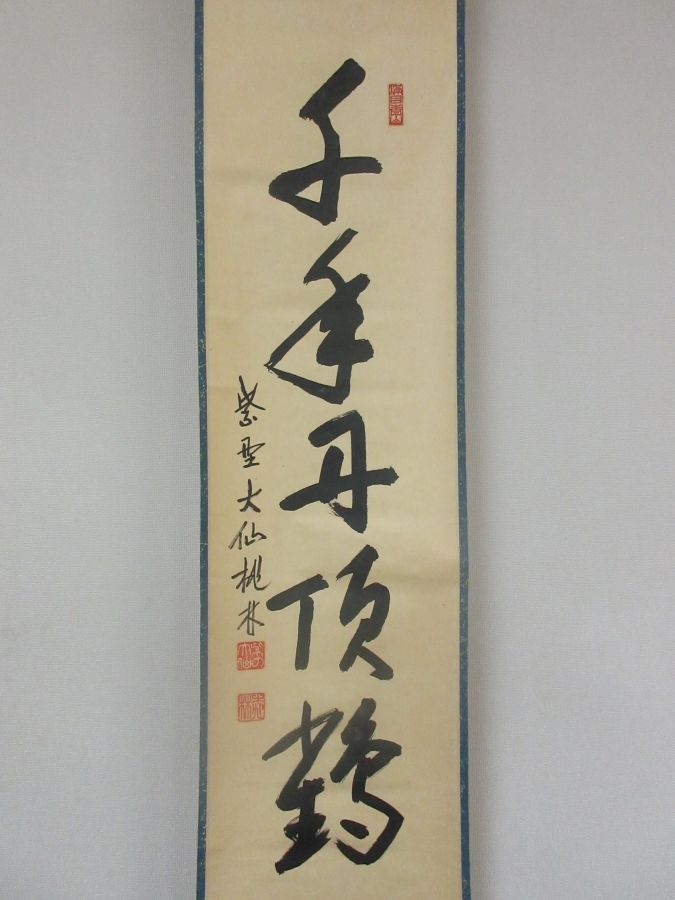 千年丹頂鶴
紫野大仙桃林